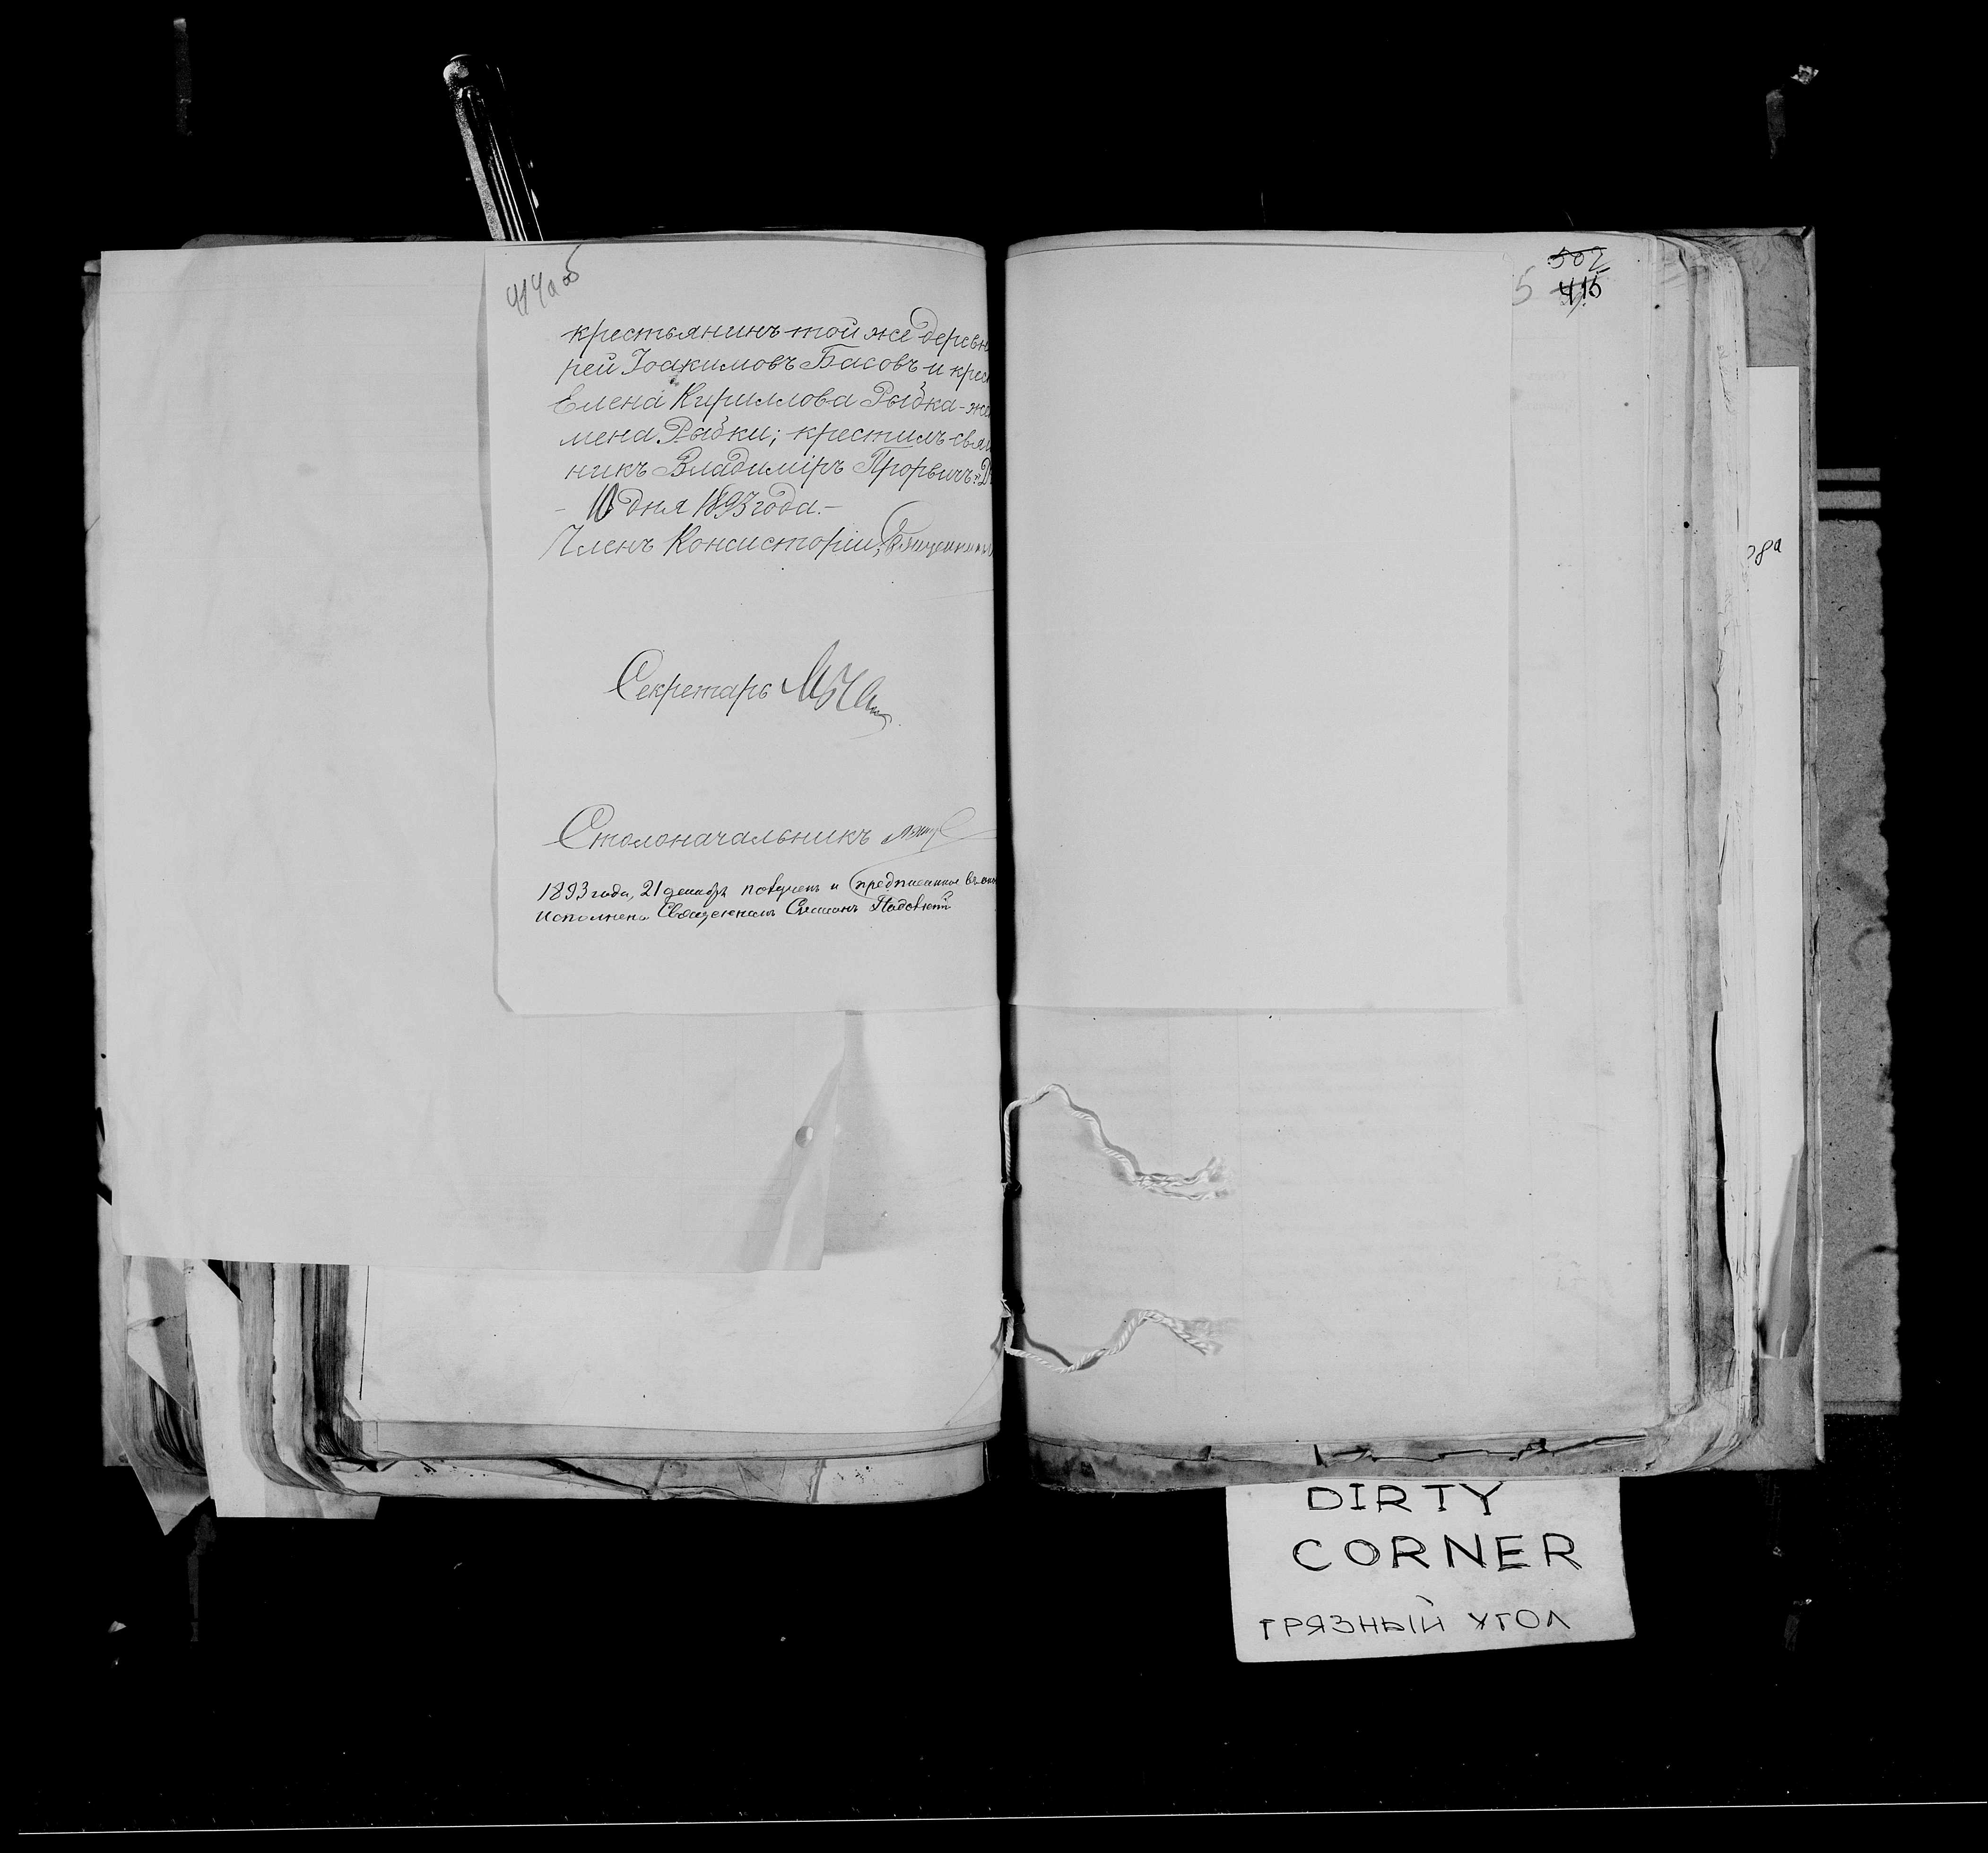 414аоб
крестьянинъ той же деревн
рей Іоакимовъ Басовъ и крес
Елена Кириллова Рыбка - же
мена Рыбки; крестилъ свящ
никъ Владиміръ Прорвичъ." Д
- 10 дня 1893 года. -
Членъ Консисторіи, Священникъ
Секретарь
Столоначальникъ
1893 года, 21 декабря получен и предписанное въ
исполнено Священникъ Симеонъ
502
5 415
98а
DIRTY
CORNER
ГРЯЗНЫЙ УГОЛ